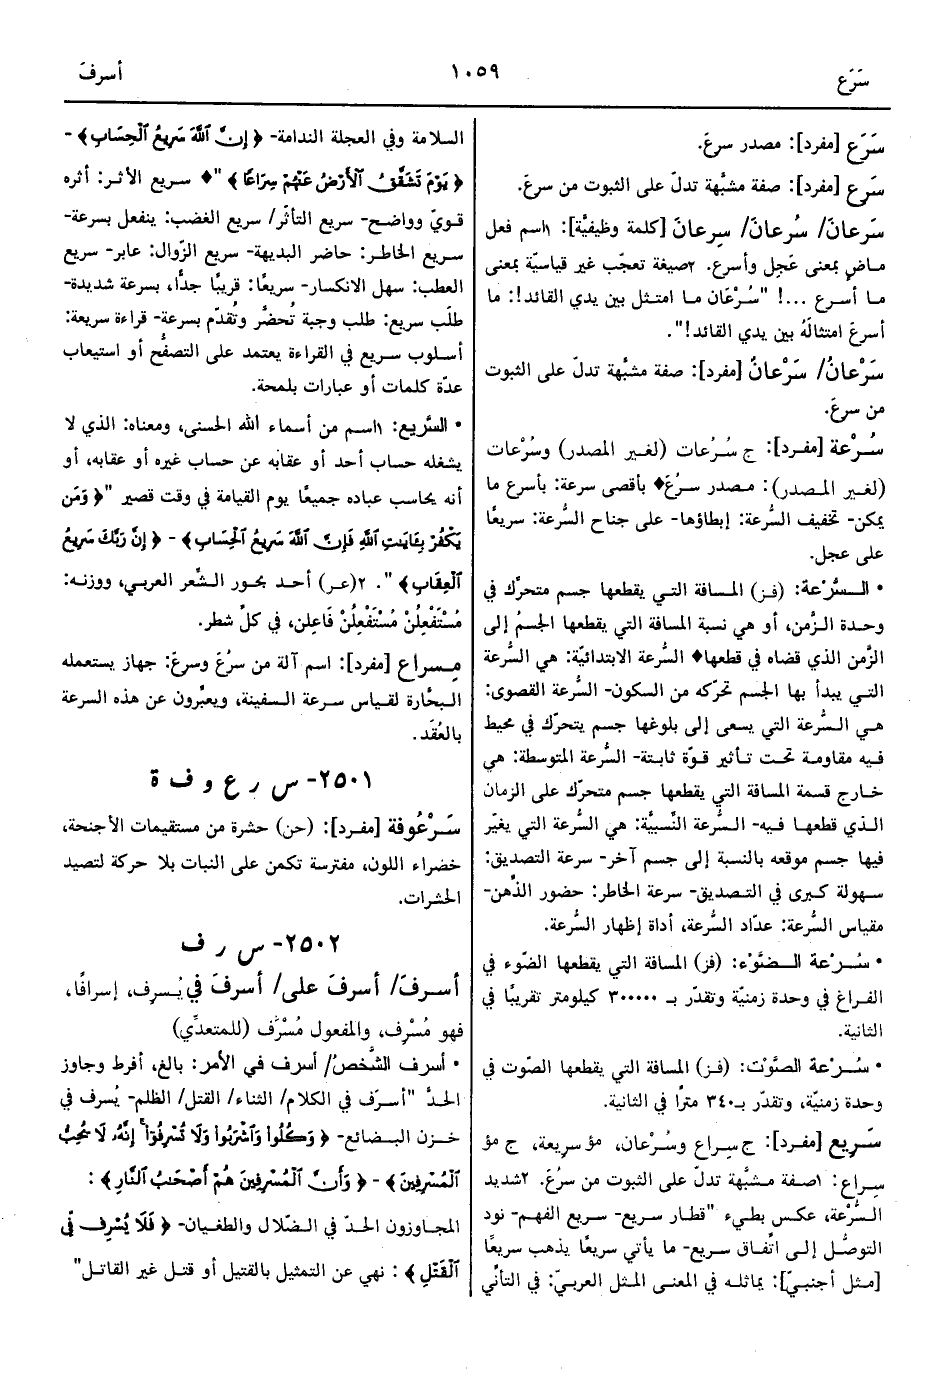 سَرَع
١٠٥٩
أسرفَ
سَرَع [مفرد]: مصدر سرِعَ.
سَرِع [مفرد]: صفة مشبَّهة تدلّ على الثبوت من سرِعَ.
سَرعانَ/ سُرعانَ/ سِرعانَ [كلمة وظيفيَّة]: ١اسم فعل
ماضٍ بمعنى عَجِل وأسرع. ٢صيغة تعجّب غير قياسيّة بمعنى
ما أسرع ...! "سُرْعَان ما امتثل بين يدي القائد!: ما
أسرعَ امتثالَهُ بين يدي القائد!".
سَرْعانُ/ سَرْعانٌ [مفرد]: صفة مشبَّهة تدلّ على الثبوت
من سرِعَ.
سُرْعة [مفرد]: ج سُرُعات (لغير المصدر) وسُرْعات
(لغير المصدر): مصدر سرُعَ♦ بأقصى سرعة: بأسرع ما
يمكن- تخفيف السُّرعة: إبطاؤها- على جناح السُّرعة: سريعًا
على عجل.
• السُّرْعة: (فز) المسافة التي يقطعها جسم متحرِّك في
وحدة الزَّمن، أو هي نسبة المسافة التي يقطعها الجسمُ إلى
الزَّمن الذي قضاه في قطعها♦ السُّرعة الابتدائيَّة: هي السُّرعة
التي يبدأ بها الجسم تحرّكه من السكون- السُّرعة القصوى:
هي السُّرعة التي يسعى إلى بلوغها جسم يتحرّك في محيط
فيه مقاومة تحت تأثير قوّة ثابتة- السُّرعة المتوسطة: هي
خارج قسمة المسافة التي يقطعها جسم متحرّك على الزمان
الذي قطعها فيه- السُّرعة النِّسبيَّة: هي السُّرعة التي يغيّر
فيها جسم موقعه بالنسبة إلى جسم آخر- سرعة التصديق:
سهولة كبرى في التصديق- سرعة الخاطر: حضور الذِّهن-
مقياس السُّرعة: عدّاد السُّرعة، أداة إظهار السُّرعة.
• سُرْعة الضَّوْء: (فز) المسافة التي يقطعها الضَّوء في
الفراغ في وحدة زمنيّة وتقدّر بـ ٣٠٠٠٠٠ كيلومتر تقريبًا في
الثانية.
• سُرْعة الصَّوْت: (فز) المسافة التي يقطعها الصَّوت في
وحدة زمنيّة، وتقدّر بـ٣٤٠ مترًا في الثانية.
سَريع [مفرد]: ج سِراع وسُرْعان، مؤ سريعة، ج مؤ
سِراع: ١صفة مشبَّهة تدلّ على الثبوت من سرُعَ. ٢شديد
السُّرْعة، عكس بطيء "قطار سريع- سريع الفهم- نود
التوصُّل إلى اتِّفاق سريع- ما يأتي سريعًا يذهب سريعًا
[مثل أجنبيّ]: يماثله في المعنى المثل العربيّ: في التأنِّي
السلامة وفي العجلة الندامة- ﴿ إِنَّ ٱللَّهَ سَرِيعُ ٱلْحِسَابِ ﴾-
﴿ يَوْمَ تَشَقَّقُ ٱلْأَرْضُ عَنْهُمْ سِرَاعًا ﴾ "♦ سريع الأثر: أثره
قويّ وواضح- سريع التأثّر/ سريع الغضب: ينفعل بسرعة-
سريع الخاطر: حاضر البديهة- سريع الزَّوال: عابر- سريع
العطب: سهل الانكسار- سريعًا: قريبًا جدًّا، بسرعة شديدة-
طلَب سريع: طلب وجبة تُحضَّر وتُقدَّم بسرعة- قراءة سريعة:
أسلوب سريع في القراءة يعتمد على التصفُّح أو استيعاب
عدّة كلمات أو عبارات بلمحة.
• السَّريع: ١اسم من أسماء الله الحسنى، ومعناه: الذي لا
يشغله حساب أحد أو عقابه عن حساب غيره أو عقابه، أو
أنه يحاسب عباده جميعًا يوم القيامة في وقت قصير "﴿ وَمَن
يَكْفُرْ بِـَٔايَٰتِ ٱللَّهِ فَإِنَّ ٱللَّهَ سَرِيعُ ٱلْحِسَابِ ﴾- ﴿ إِنَّ رَبَّكَ سَرِيعُ
ٱلْعِقَابِ ﴾ ". ٢(عر) أحد بحور الشِّعر العربي، ووزنه:
مُسْتَفْعِلُنْ مُسْتَفْعِلُنْ فَاعِلن، في كلِّ شطر.
مِسراع [مفرد]: اسم آلة من سرُعَ وسرِعَ: جهاز يستعمله
البحَّارة لقياس سرعة السفينة، ويعبِّرون عن هذه السرعة
بالعُقَد.
٢٥٠١- س ر ع و ف ة
سَرْعُوفة [مفرد]: (حن) حشرة من مستقيمات الأجنحة،
خضراء اللون، مفترسة تكمن على النبات بلا حركة لتصيد
الحشرات.
٢٥٠٢- س ر ف
أسرفَ/ أسرفَ على/ أسرفَ في يُسرِف، إسرافًا،
فهو مُسْرِف، والمفعول مُسْرَف (للمتعدِّي)
• أسرف الشَّخصُ/ أسرف في الأمر: بالغ، أفرط وجاوز
الحدَّ "أسرَف في الكلام/ الثناء/ القتل/ الظلم- يُسرف في
خزن البضائع- ﴿ وَكُلُوا۟ وَٱشْرَبُوا۟ وَلَا تُسْرِفُوٓا۟ ۚ إِنَّهُۥ لَا يُحِبُّ
ٱلْمُسْرِفِينَ ﴾- ﴿ وَأَنَّ ٱلْمُسْرِفِينَ هُمْ أَصْحَٰبُ ٱلنَّارِ ﴾:
المجاوزون الحدّ في الضّلال والطغيان- ﴿ فَلَا يُسْرِف فِّى
ٱلْقَتْلِ ﴾: نهي عن التمثيل بالقتيل أو قتل غير القاتل"